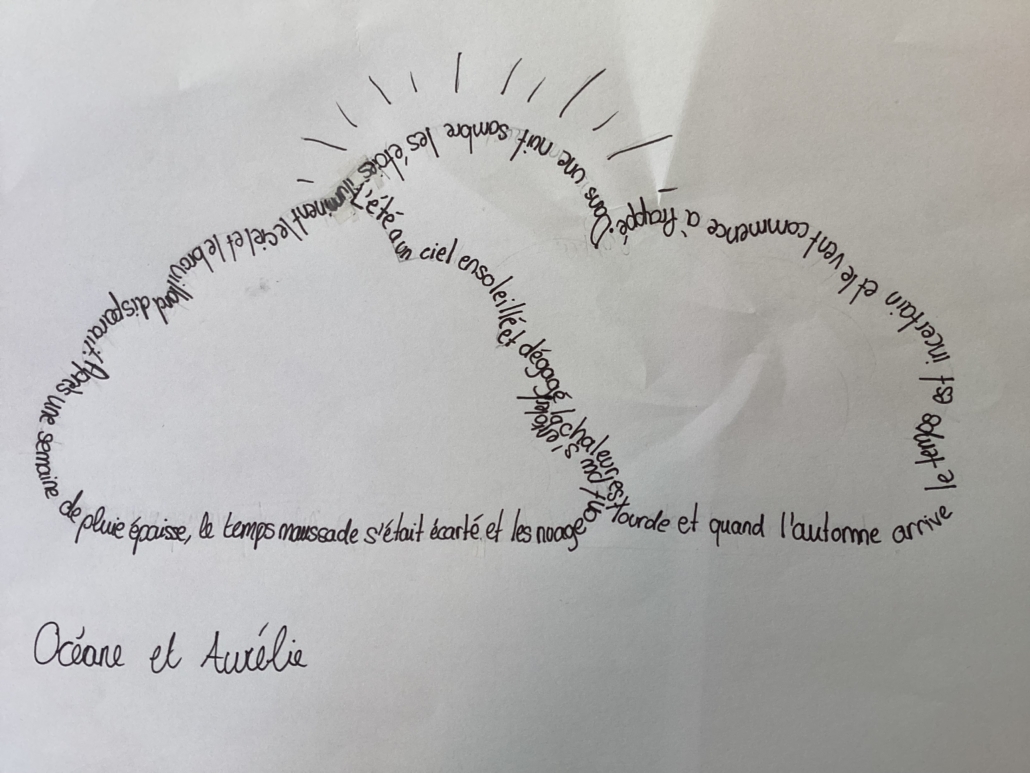 L'été a un ciel ensoleillé et dégagé la chaleur est lourde et quand l'automne arrive
le temps est incertain et le vent commence à frappé.
Dans une nuit sombre les étoiles iluminent le ciel et le brouillard disparait.
Après une semaine de pluie épaisse, le temps maussade s'était écarté et les nuage ont pu
Océane et Aurélie